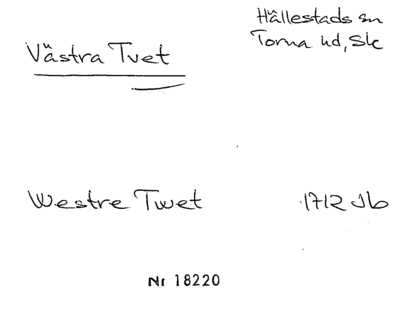 Hällestads sn
Torna hd, Sk
Västra Tvet
Westre Twet 1712 Jb
Nr 18220